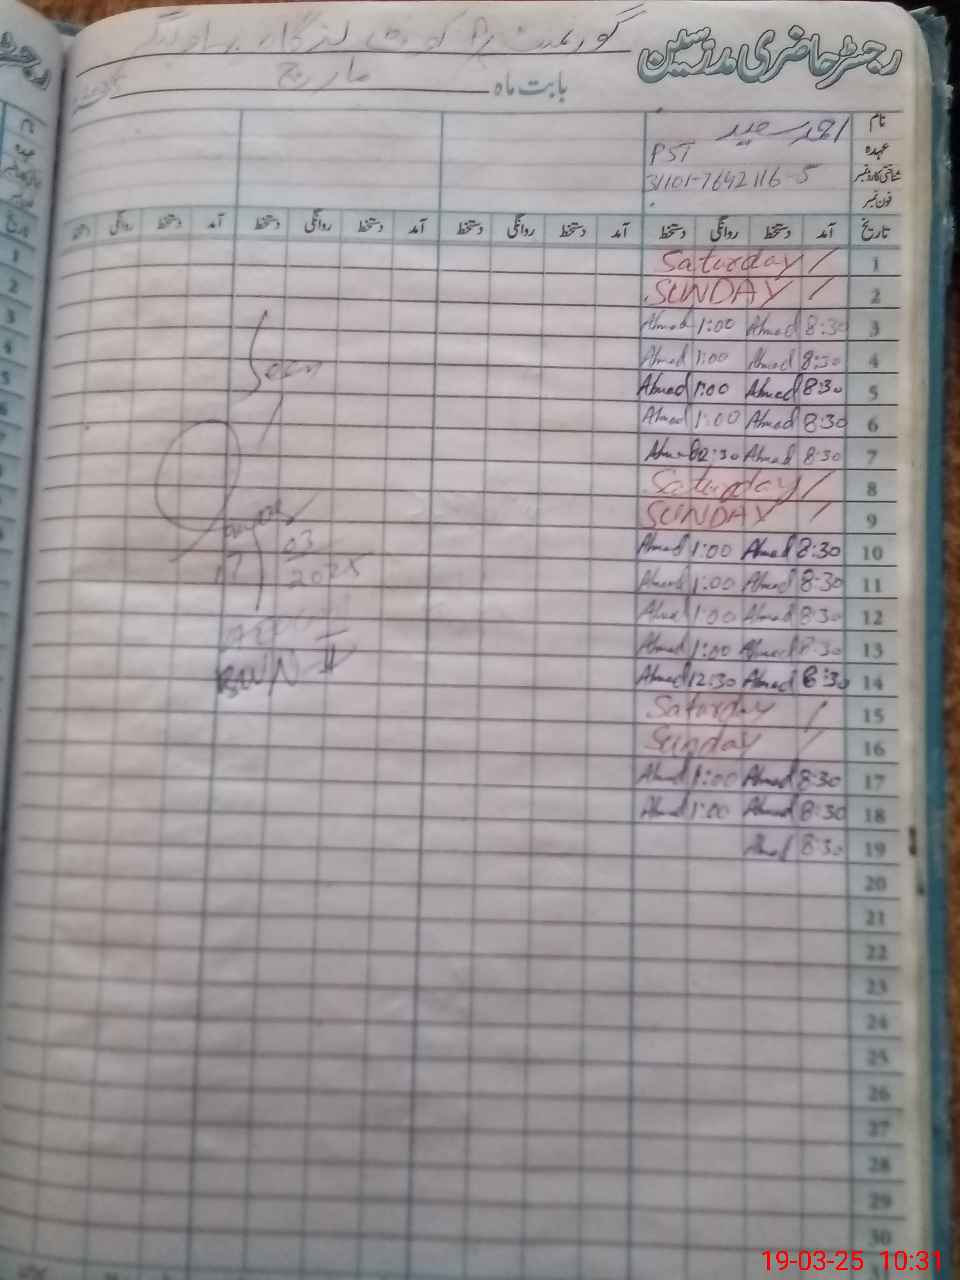 رجسٹر حاضری مدرسین
گورنمنٹ
بابت ماہ مارچ
نام احمد سعید
عہدہ PST
شناختی کارڈ نمبر 31101-7642116-5
فون نمبر
تاریخ آمد دستخط روانگی دستخط آمد دستخط روانگی دستخط آمد دستخط روانگی دستخط آمد دستخط روانگی دستخط
1 Saturday /
2 SUNDAY /
3 8:30 Ahmad 1:00 Ahmad
4 8:30 Ahmad 1:00 Ahmad
5 8:30 Ahmad 1:00 Ahmad
6 8:30 Ahmad 1:00 Ahmad
7 8:30 Ahmad 12:30 Ahmad
8 Saturday /
9 SUNDAY /
10 8:30 Ahmad 1:00 Ahmad
11 8:30 Ahmad 1:00 Ahmad
12 8:30 Ahmad 1:00 Ahmad
13 8:30 Ahmad 1:00 Ahmad
14 8:30 Ahmad 12:30 Ahmad
15 Saturday /
16 Sunday /
17 8:30 Ahmad 1:00 Ahmad
18 8:30 Ahmad 1:00 Ahmad
19 8:30 Ahmad
20
21
22
23
24
25
26
27
28
29
30
Seen
17/03
2025
BWN-II
19-03-25 10:31